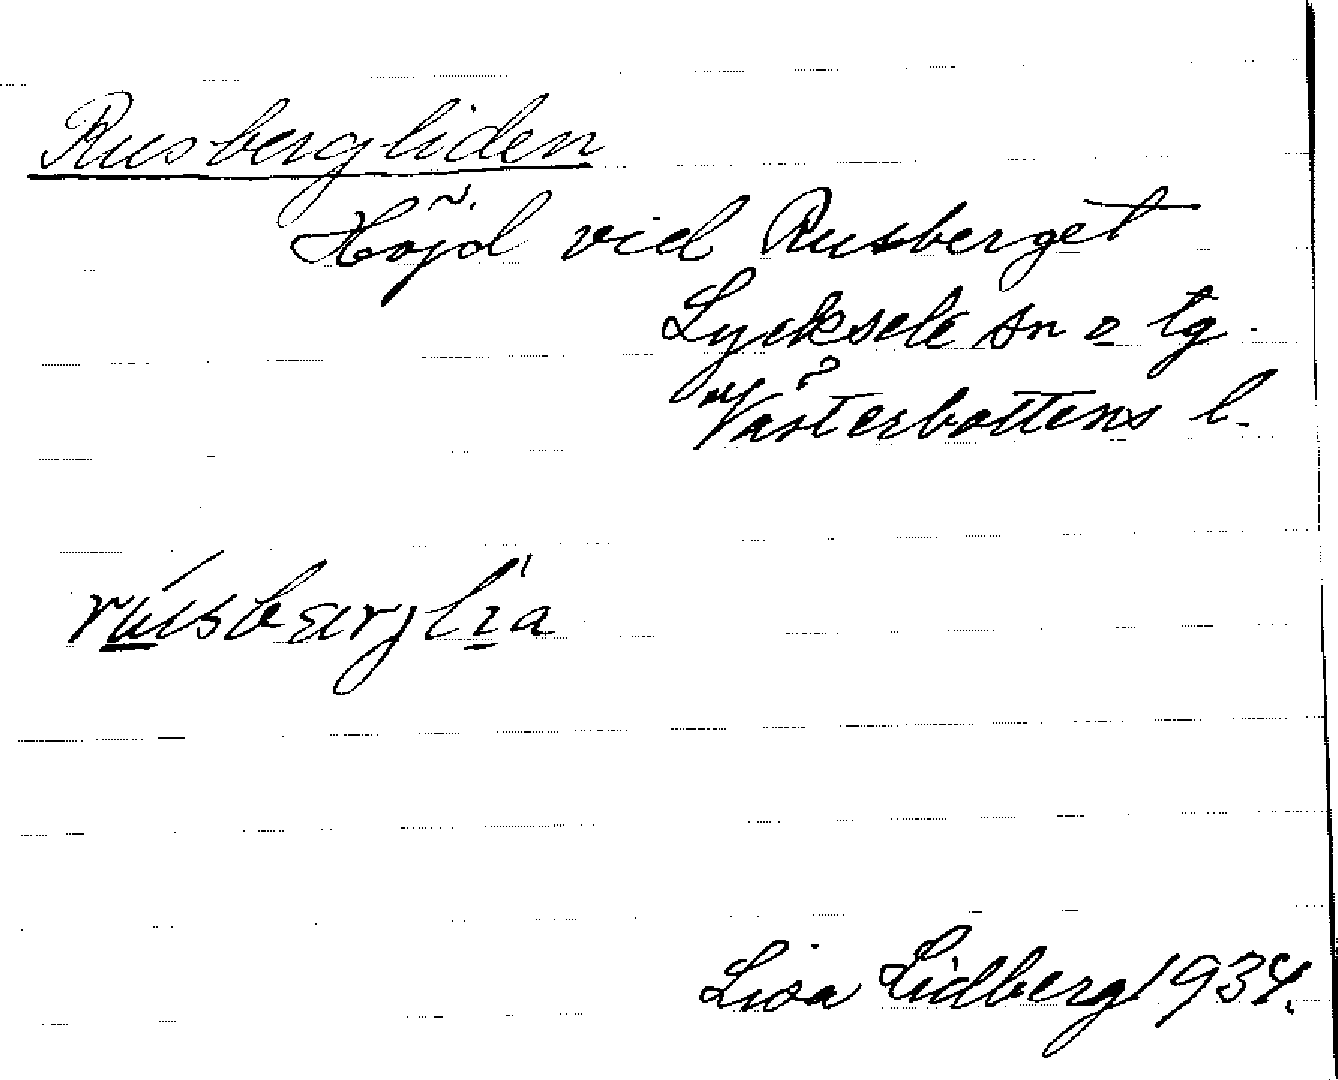 Rusbergliden
Höjd vid Rusberget
Lycksele sn o tg.
Västerbottens l.
Lisa Lidberg 1934.